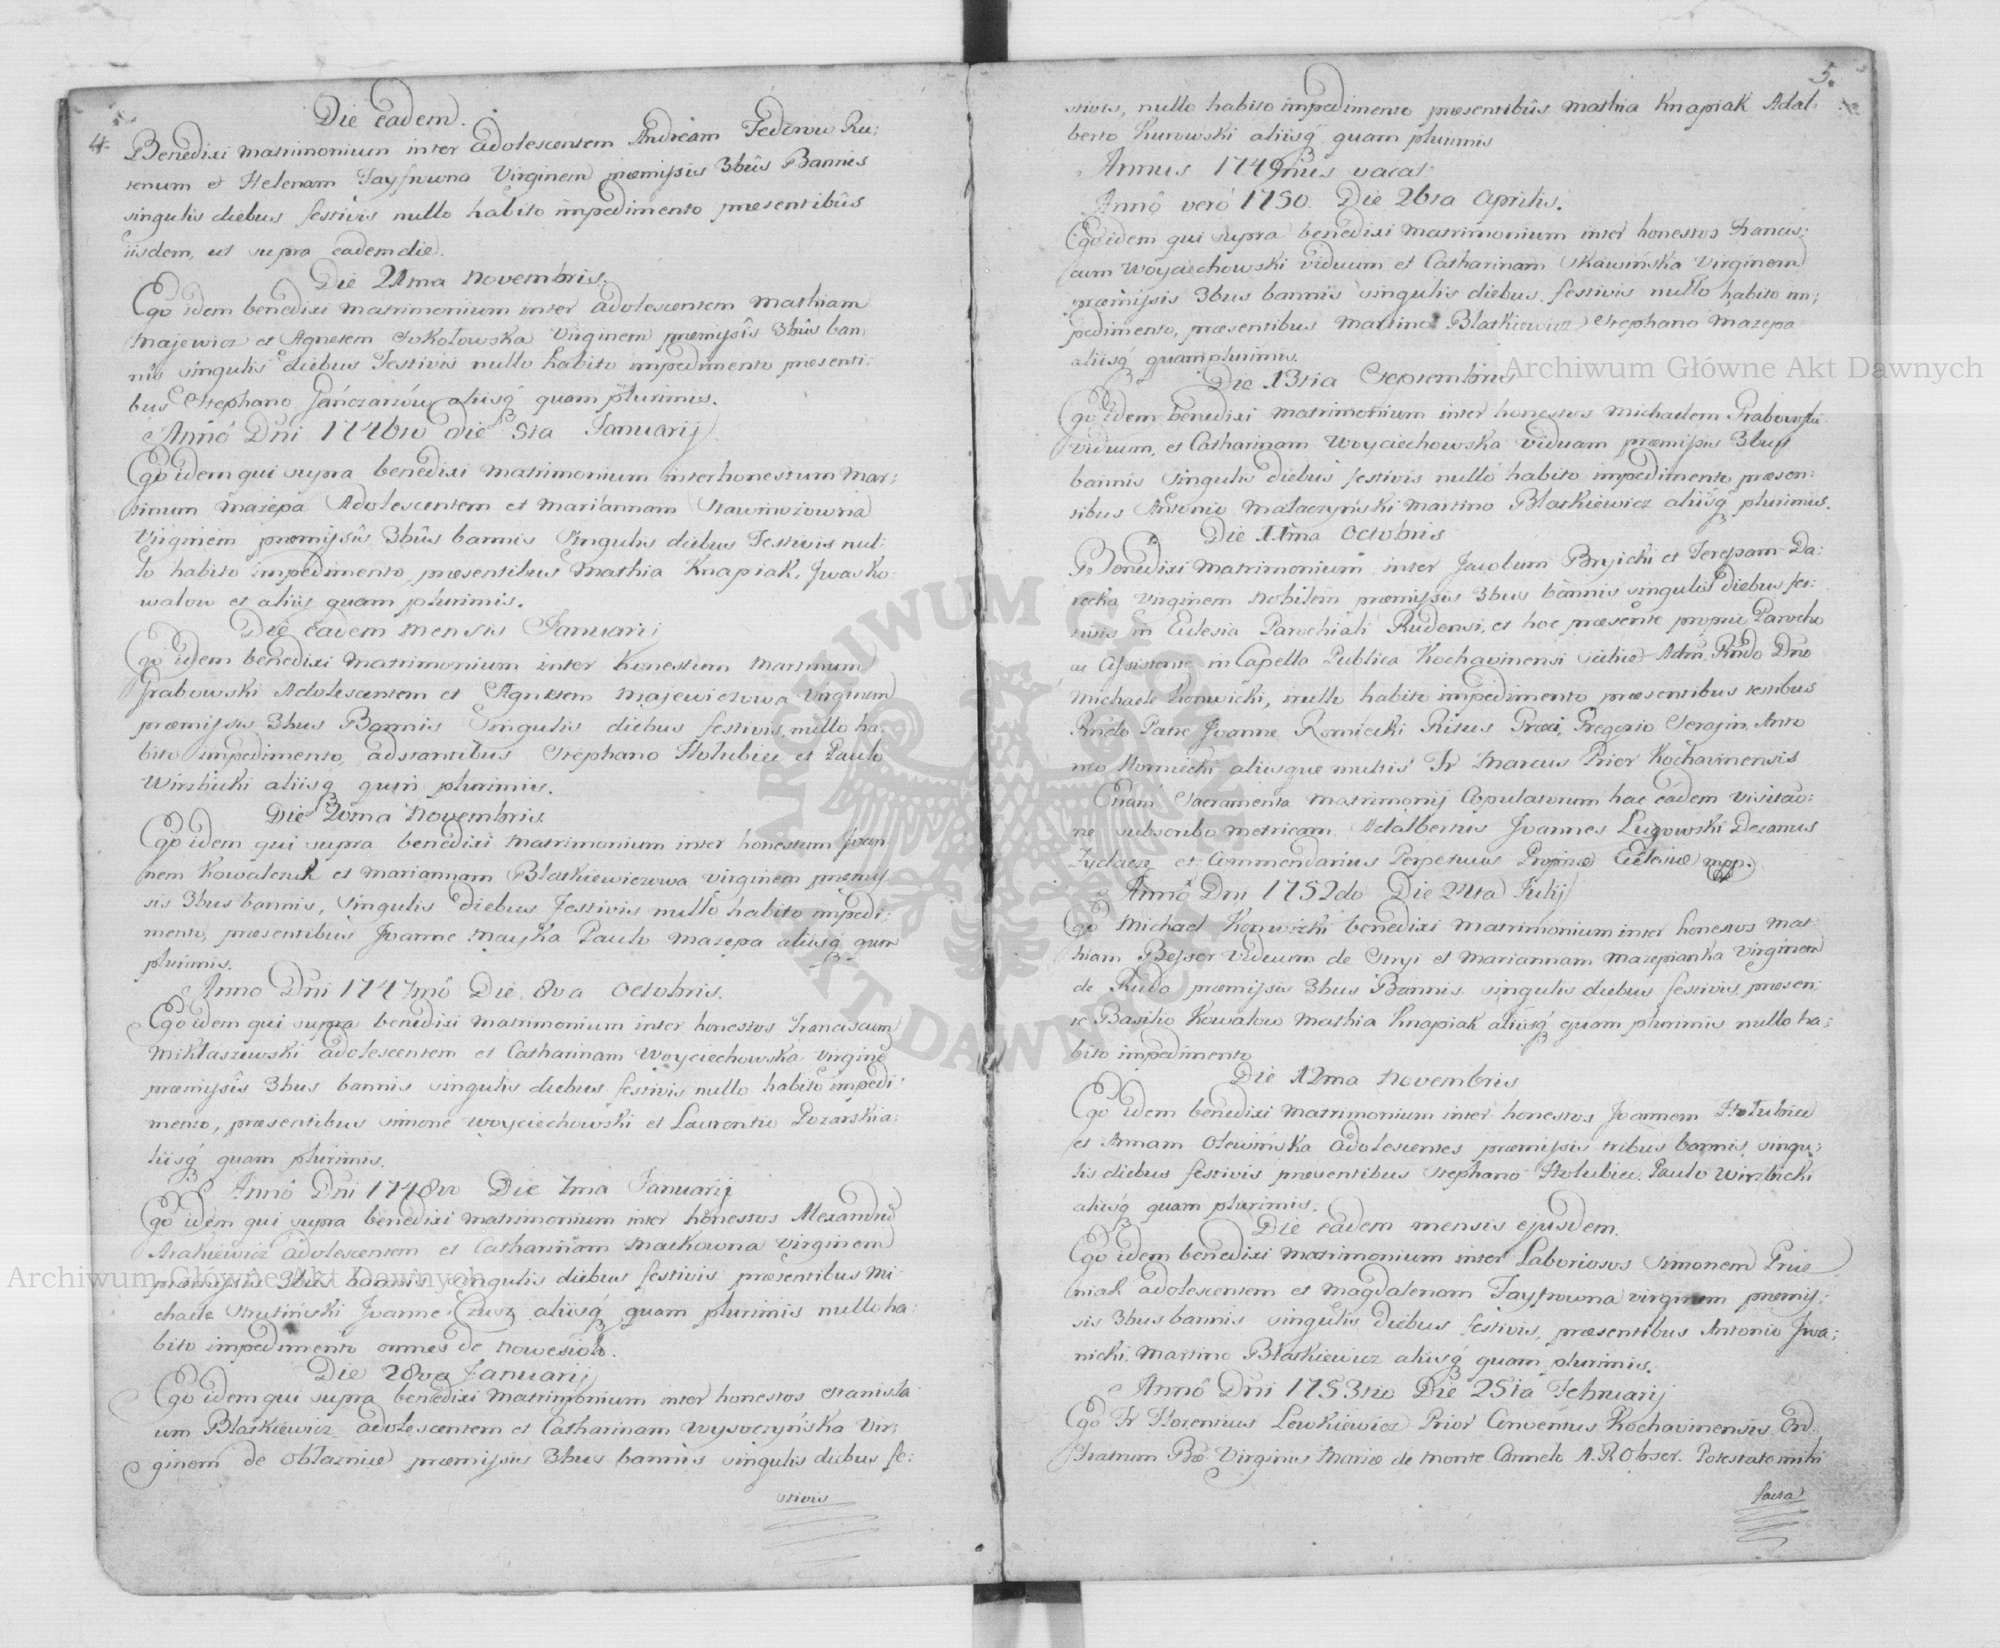 4.
Die eadem.
Benedixi matrimonium inter adolescentem Andream Federow Ru:
tenum et Helenam Tayfrowna Virginem præmissis 3bûs Bannis
singulis diebus festivis nullo habito impedimento præsentibûs
iisdem, ut supra eadem die.
Die 21ma Novembris.
Ego idem benedixi matrimonium inter adolescentem Mathiam
Majewicz et Agnetem Sokołowska Virginem præmissîs 3bûs ban:
nis singulis diebus Festivis nullo habito impedimento præsenti:
bus Stephano aliisq́ quam plurimis.
Annô Dni 1746to die Januarij
Ego idem qui supra benedixi matrimonium inter honestum Mar:
tinum Mazepa Adolescentem et Mariannam
Virginem præmissîs 3bûs bannis singulis diebus Festivis nul:
lo habito impedimento, præsentibus Mathia Knapiak, Iwa Ko:
walow et aliis quam plurimis.
Die eadem mensis Januarij
Ego idem benedixi matrimonium inter honestum Martinum
Grabowski Adolescentem et Agnetem Majewiczowa Virginem
præmissis 3bus Bannis Singulis diebus festivis nullo ha:
bito impedimento, adstantibus Stephano Hołubiec et Paulo
Wirzbicki aliisq́ qum plurimis.
Die 20ma Novembris.
Ego idem qui supra benedixi matrimonium inter honestum Joan:
nem Kowalczuk et Mariannam Błaskiewiczowa virginem præmis
sis 3bus bannis, singulis diebus festivis nullo habito impedi:
mento, præsentibus Joanne Mayka Paulo Mazepa aliisq́ qum
plurimis.
Anno Dni 1747mô Die 8va Octobris.
Ego idem qui supra benedixi matrimonium inter honestos Franciscum
Mikłaszewski adolescentem et Catharinam Woyciechowska virginē
præmissîs 3bus bannis singulis diebus festivis nullo habito impedi:
mento, præsentibus Simone Woyciechowski et Laurentio a:
liisq́ quam plurimis.
Annô Dni 1748vo Die 7ma Januarij
Ego idem qui supra benedixi matrimonium inter honestos Alexandrū
Arakiewicz adolescentem et Catharinam Markowna virginem
præmissis 3bus bannis singulis diebus festivis præsentibus Mi
chaele Strutiński Joanne aliisq́ quam plurimis nullo ha:
bito impedimento omnes de
Die 28va Januarij
Ego idem qui supra benedixi matrimonium inter honestos Stanisła
um Błaskiewicz adolescentem et Catharinam Wysoczyńska Vir:
ginem de Obłaznicæ præmissis 3bus bannis singulis diebus fe:
stivis
5.
stivis, nullo habito impedimento præsentibûs Mathia Knapiak Adal:
berto Kurowski aliisq́ quam plurimis
Annus 1749nus vacat.
Annô verò 1750. Die 26ta Aprilis.
Ego idem qui supra benedixi matrimonium inter honestos Francis:
cum Woyciechowski viduum et Catharinam Skawińska virginem
præmissis 3bus bannis singulis diebus festivis nullo habito im:
pedimento, præsentibus Martino Błaskiewicz Stephano Mazepa
aliisq́ quam plurimis.
Die 13tia Septembris
Ego idem benedixi matrimonium inter honestos Michaelem Grabowski
viduum, et Catharinam Woyciechowska viduam præmissis 3bus
bannis singulis diebus festivis nullo habito impedimento, præsen:
tibus Antonio Martino Błaskiewicz aliisq́ plurimis.
Die 11ma Octobris
Benedixi matrimonium inter Jacobum et Teressam Da:
recka virginem Nobilem præmissis 3bus bannis singulis diebus fes:
tivis in Eclesia Parochiali Rudensi, et hoc præsente proprio Parocho
ac Assistente in Capella Publica Kochavinensi scilicet Adm. Rndo Dno
Michaele Konwicki, nullo habito impedimento præsentibus testibus
Rndo Patre Joanne Romicki Ritus Græci, Gregorio Serafin, Anto
nio aliisque multis Fr Marcus Prior Kochavinensis
Quam Sacramenta Matrimonij Copulatorum hac eadem visitao:
ne subscribo metricam. Adalbertus Joannes Ługowski Decanus
et Commendarius Perpetuus Eclesiæ mpp.
Annô Dni 1752do Die 24ta Julij
Ego Michael Konwicki benedixi matrimonium inter honestos Mat
hiam Bessor viduum de Stryi et Mariannam Mazepianka virginem
de Ruda præmissis 3bus Bannis singulis diebus festivis, præsen
te Basilio Kowalow Mathia Knapiak aliisq́ quam plurimis nullo ha:
bito impedimento
Die 12ma Novembris
Ego idem benedixi matrimonium inter honestos Joannem Hołubiec
et Annam Olewińska adolescentes præmissis tribus bannis, singu:
lis diebus festivis præsentibus Stephano Hołubiec, Paulo Wirzbicki
aliisq́ quam plurimis.
Die eadem mensis ejusdem.
Ego idem benedixi matrimonium inter Laboriosos Simonem
niak adolescentem et Magdalenam Tayfrowna virginem præmis:
sis 3bus bannis singulis diebus festivis, præsentibus Antonio Iwa:
nicki, Martino Błaskiewicz aliisq́ quam plurimis.
Annô Dni 1753tio Die 25ta Februarij
Ego Fr Florentius Lewkiewicz Prior Conventus Kochavinensis Ord
Fratrum Bæ Virginis Mariæ de Monte Carmelo A.R. Obser. Potestate mihi
facta
Archiwum Główne Akt Dawnych
Archiwum Główne Akt Dawnych
ARCHIWUM GŁÓWNE AKT DAWNYCH